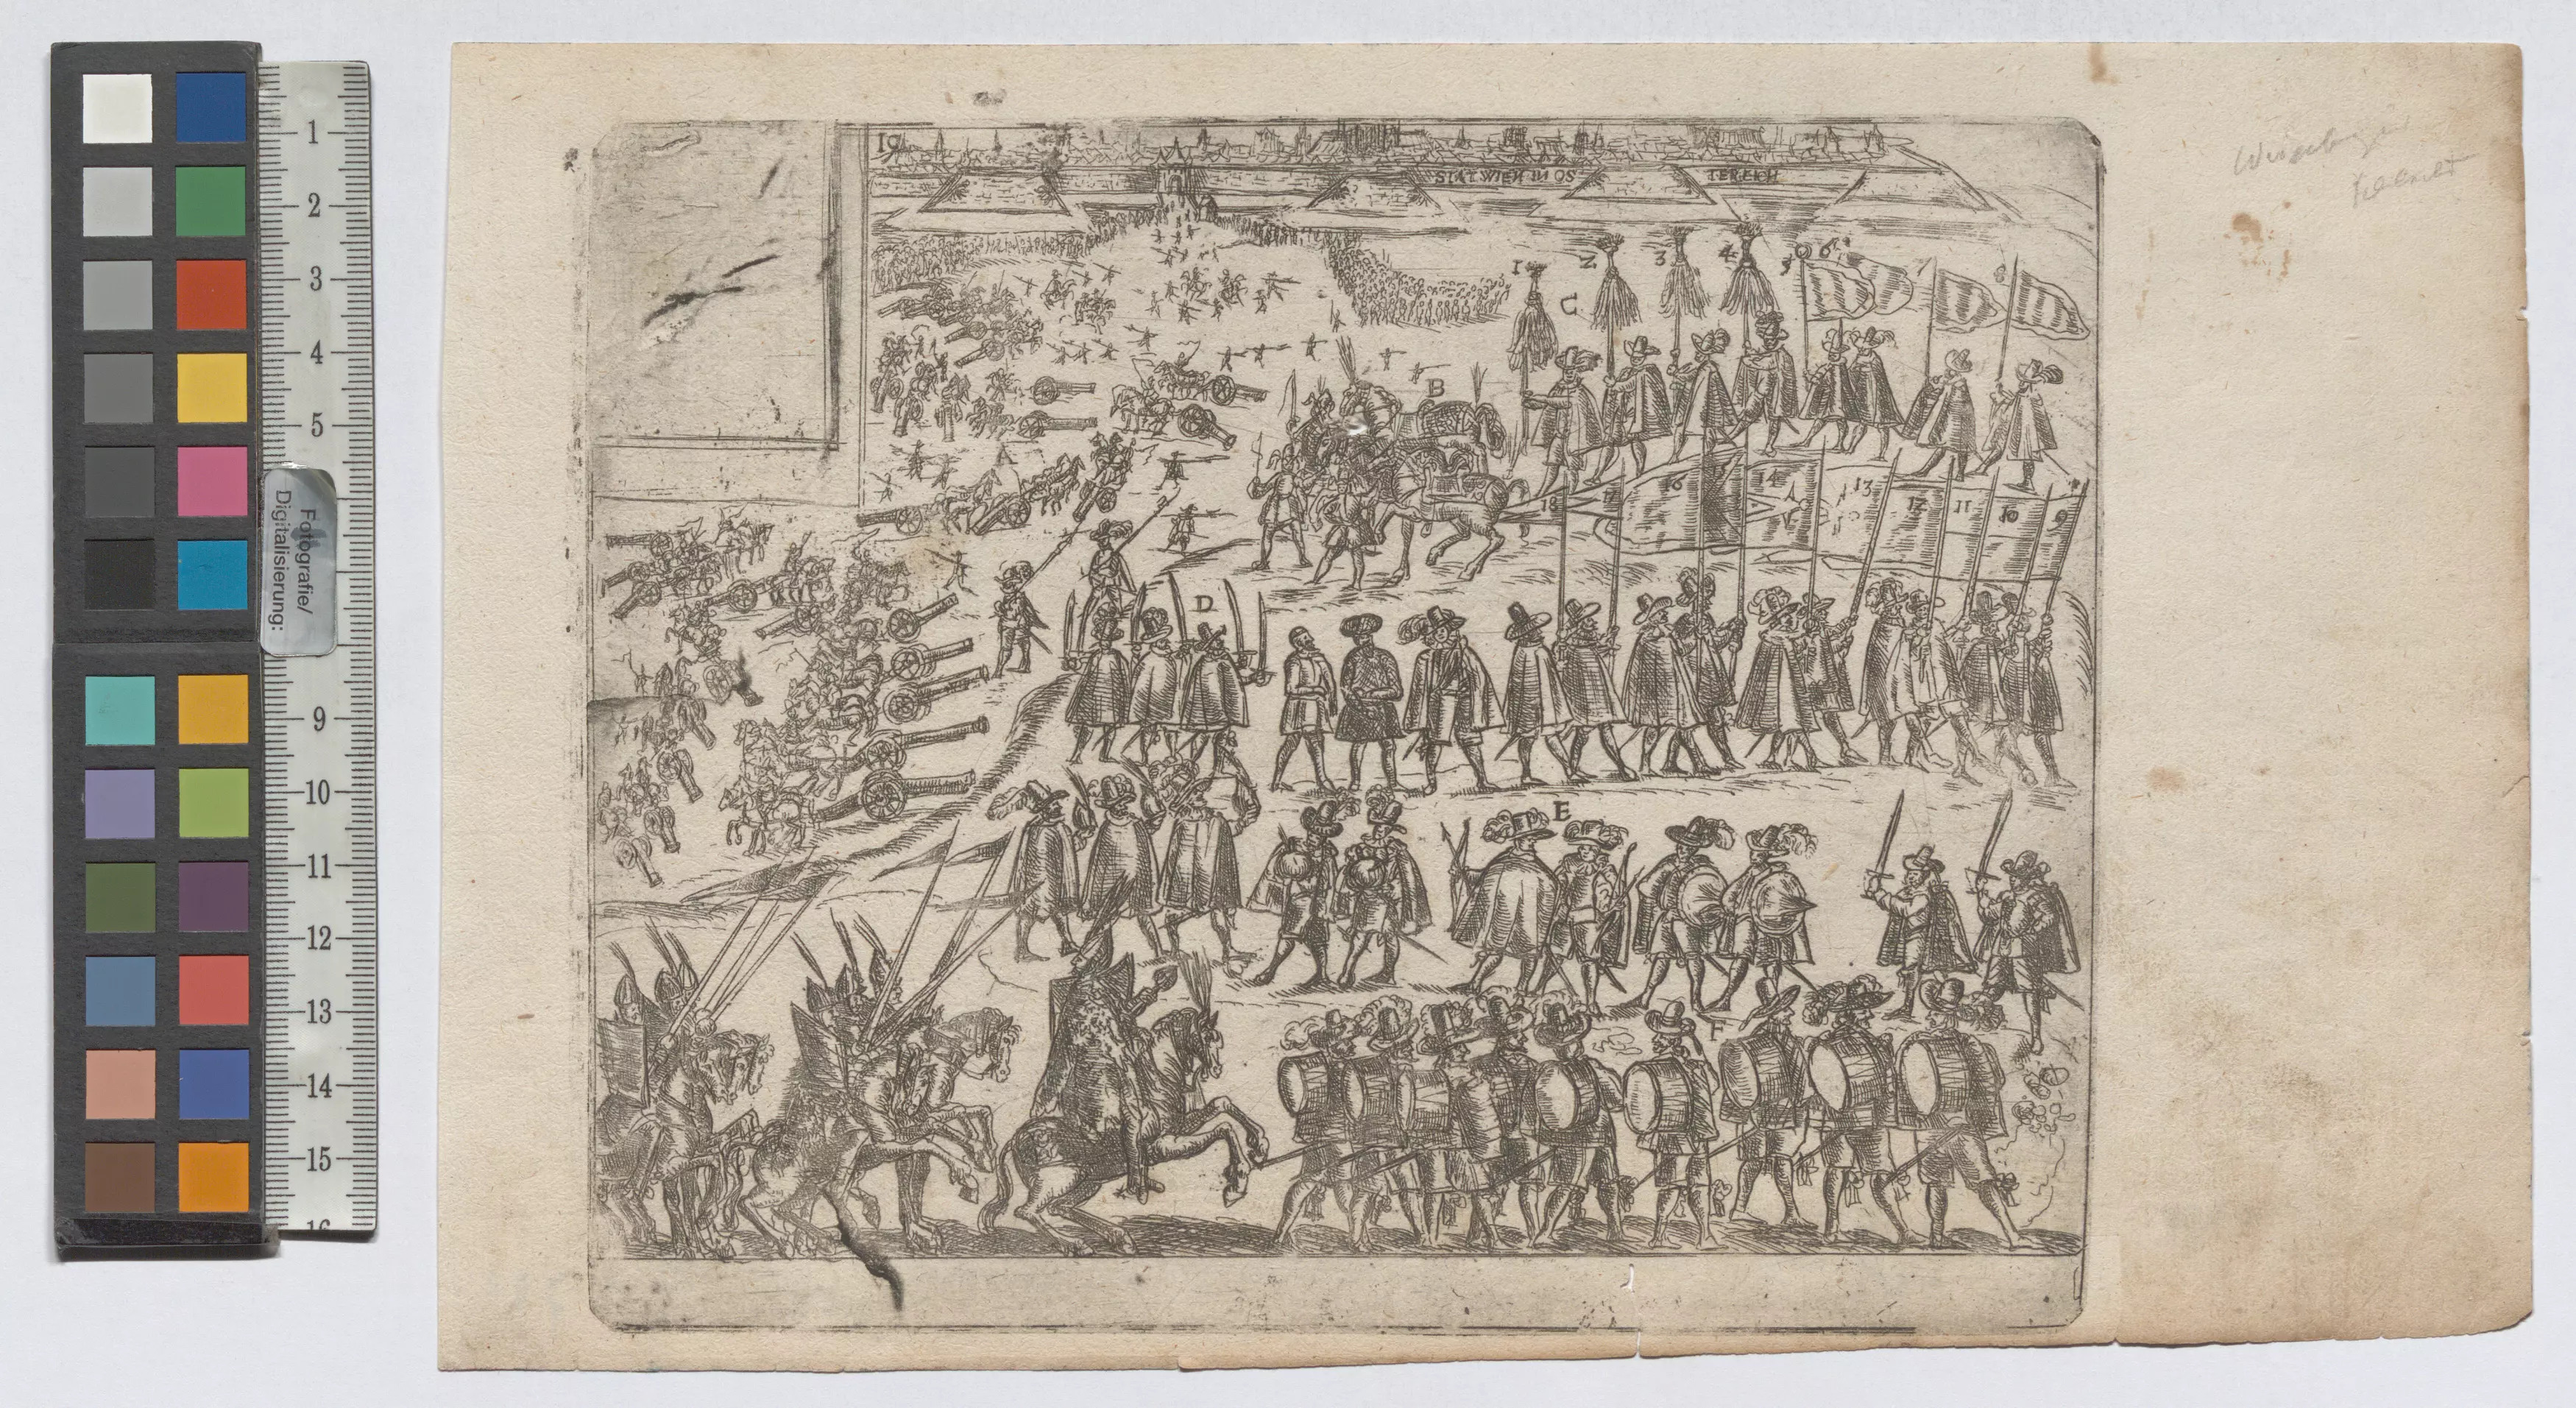 1
2
3
4
5
Fotografie/
Digitalisierung:
9
10
11
12
13
14
15
16
19
STAT WIEN IN OS
TEREICH
1
2
3
4
5
6
7
8
C
B
A
18
17
16
14
13
12
11
10
9
D
E
F